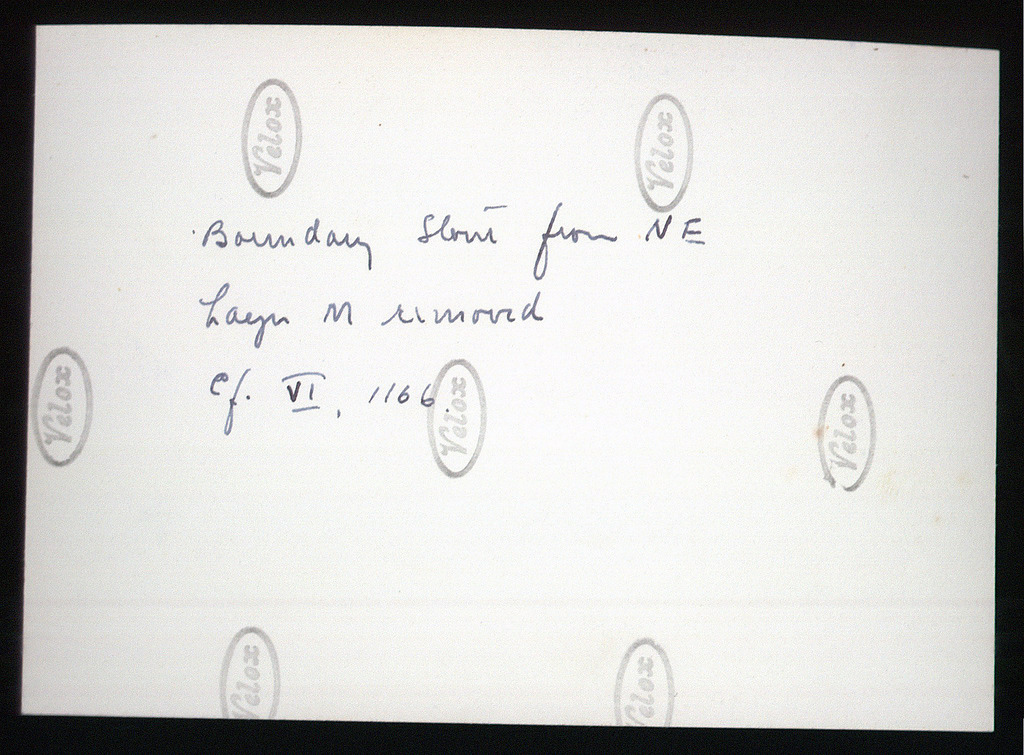 Velox Velox
Boundary Stone from NE
Layer M removed
Cf. VI, 1166.
Velox Velox Velox
Velox Velox